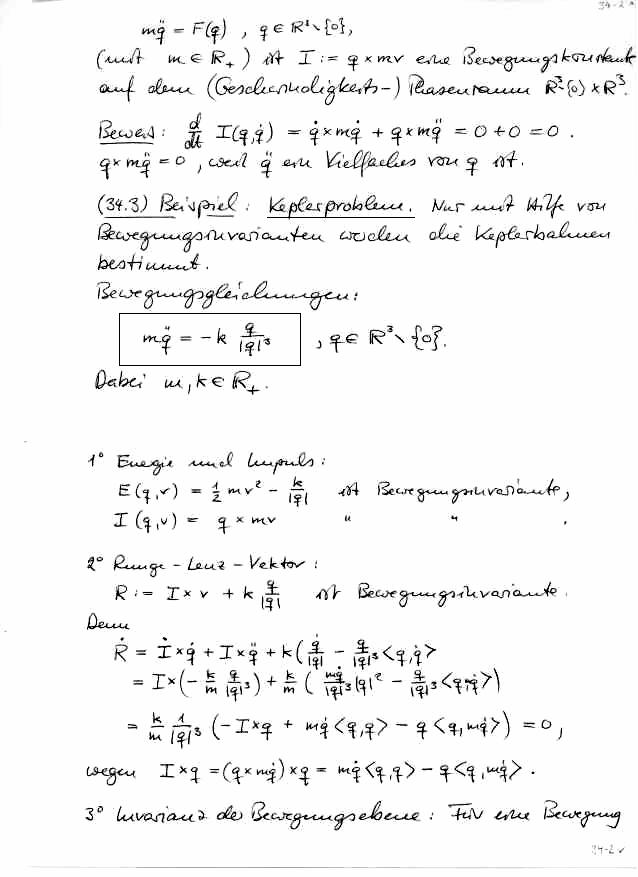 34-2
mq̈ = F(q) , q ∈ ℝ³∖{0},
(mit m ∈ ℝ₊) ist I := q × mv eine Bewegungskonstante
auf dem (Geschwindigkeits-) Phasenraum ℝ³∖{0} × ℝ³.
Beweis: d/dt I(q,q̇) = q̇ × mq̇ + q × mq̈ = 0 + 0 = 0 .
q × mq̈ = 0 , weil q̈ ein Vielfaches von q ist.
(34.3) Beispiel: Keplerproblem. Nur mit Hilfe von
Bewegungsinvarianten werden die Keplerbahnen
bestimmt.
Bewegungsgleichungen:
mq̈ = - k q/|q|³ , q ∈ ℝ³∖{0}.
Dabei m, k ∈ ℝ₊.
1° Energie und Impuls:
E(q,v) = ½ mv² - k/|q| ist Bewegungsinvariante,
I(q,v) = q × mv " " .
2° Runge-Lenz-Vektor:
R := I × v + k q/|q| ist Bewegungsinvariante.
Denn
Ṙ = İ × q̇ + I × q̈ + k( q̇/|q| - q/|q|³ <q,q̇>
= I × (- k/m q/|q|³) + k/m ( mq̇/|q|³ |q|² - q/|q|³ <q,mq̇>)
= k/m 1/|q|³ (- I × q + mq̇ <q,q> - q <q,mq̇>) = 0,
wegen I × q = (q × mq̇) × q = mq̇ <q,q> - q <q,mq̇> .
3° Invarianz der Bewegungsebene: Für eine Bewegung
34-2